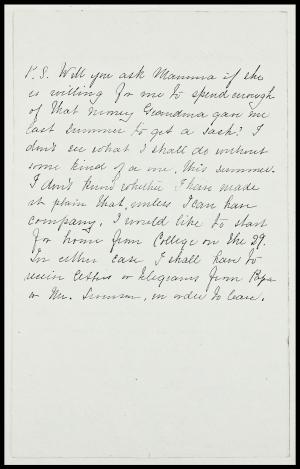 P.S. Will you ask Mamma if she
is willing for me to spend enough
of that money Grandma gave me
last summer to get a sash? I
don't see what I shall do without
some kind of a one, this summer.
I don't know whether I have made
it plain that, unless I can have
company, I would like to start
for home from College on the 29.
In either case I shall have to
receive letters or telegrams from Papa
or Mr. in order to leave.